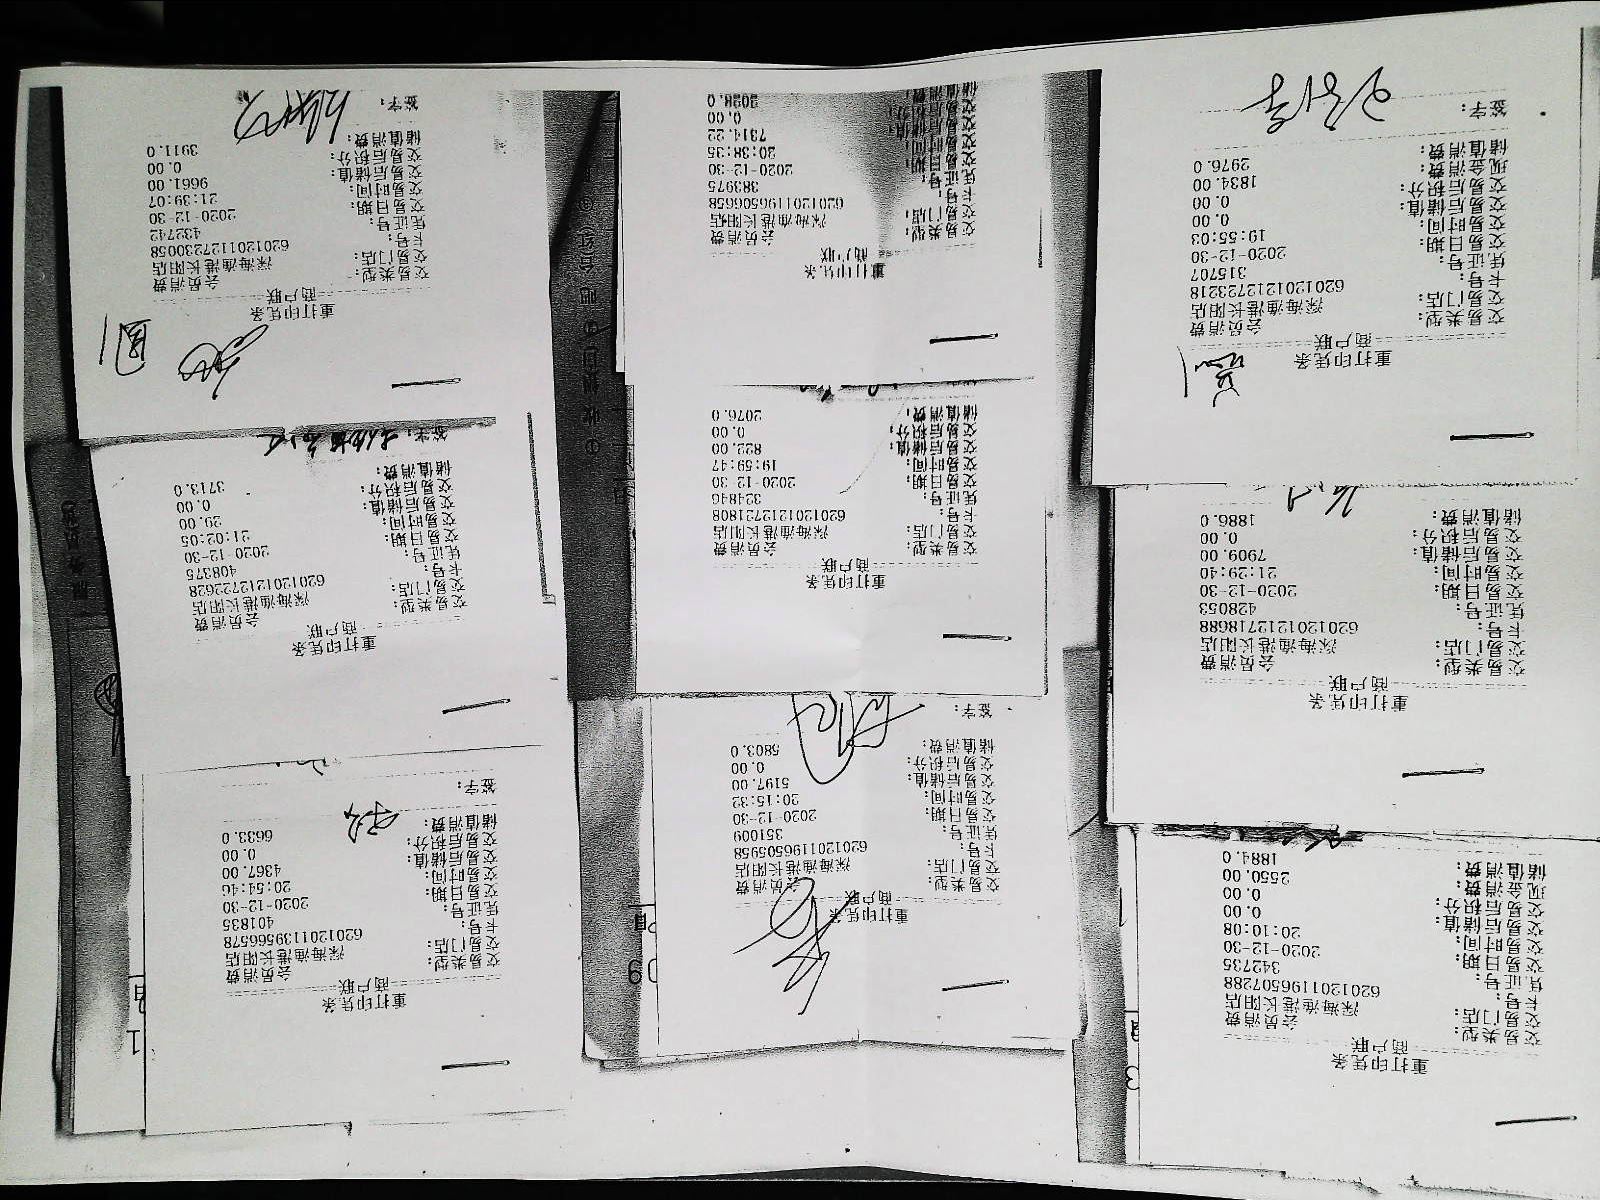 重打印凭条
商户联
交易类型: 会员消费
交易门店: 深海渔港长阳店
卡号: 6201201196507288
凭证号: 342735
交易日期: 2020-12-30
交易时间: 20:10:08
交易后储值: 0.00
交易后积分: 0.00
现金消费: 2550.00
储值消费: 1884.0
重打印凭条
商户联
交易类型: 会员消费
交易门店: 深海渔港长阳店
卡号: 6201201212718688
凭证号: 428053
交易日期: 2020-12-30
交易时间: 21:29:40
交易后储值: 7909.00
交易后积分: 0.00
储值消费: 1886.0
重打印凭条
商户联
交易类型: 会员消费
交易门店: 深海渔港长阳店
卡号: 6201201212723218
凭证号: 315707
交易日期: 2020-12-30
交易时间: 19:55:03
交易后储值: 0.00
交易后积分: 0.00
现金消费: 1834.00
储值消费: 2976.0
签字:
重打印凭条
商户联
交易类型: 会员消费
交易门店: 深海渔港长阳店
卡号: 6201201196505958
凭证号: 351009
交易日期: 2020-12-30
交易时间: 20:15:32
交易后储值: 5197.00
交易后积分: 0.00
储值消费: 5803.0
签字:
重打印凭条
商户联
交易类型: 会员消费
交易门店: 深海渔港长阳店
卡号: 6201201212721808
凭证号: 324846
交易日期: 2020-12-30
交易时间: 19:59:47
交易后储值: 822.00
交易后积分: 0.00
储值消费: 2076.0
重打印凭条
商户联
交易类型: 会员消费
交易门店: 深海渔港长阳店
卡号: 6201201196506658
凭证号: 383975
交易日期: 2020-12-30
交易时间: 20:38:35
交易后储值: 7314.22
交易后积分: 0.00
储值消费: 2028.0
重打印凭条
商户联
交易类型: 会员消费
交易门店: 深海渔港长阳店
卡号: 6201201139566578
凭证号: 401835
交易日期: 2020-12-30
交易时间: 20:54:46
交易后储值: 4367.00
交易后积分: 0.00
储值消费: 6633.0
签字:
重打印凭条
商户联
交易类型: 会员消费
交易门店: 深海渔港长阳店
卡号: 6201201212722628
凭证号: 408375
交易日期: 2020-12-30
交易时间: 21:02:05
交易后储值: 29.00
交易后积分: 0.00
储值消费: 3713.0
签字:
重打印凭条
商户联
交易类型: 会员消费
交易门店: 深海渔港长阳店
卡号: 6201201127230058
凭证号: 432742
交易日期: 2020-12-30
交易时间: 21:39:07
交易后储值: 9661.00
交易后积分: 0.00
储值消费: 3911.0
签字: